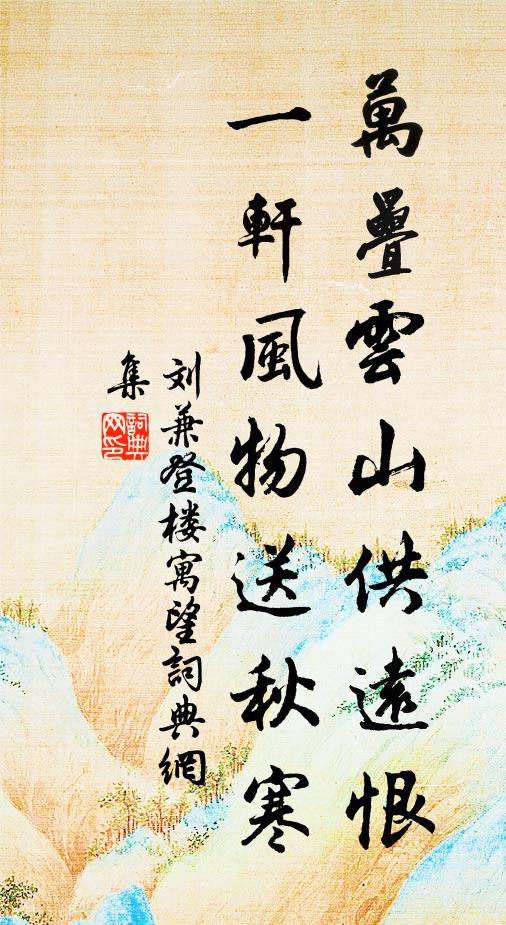 萬疊雲山供遠恨
一軒風物送秋寒
刘兼登楼寓望詞典網
集
詞典网印